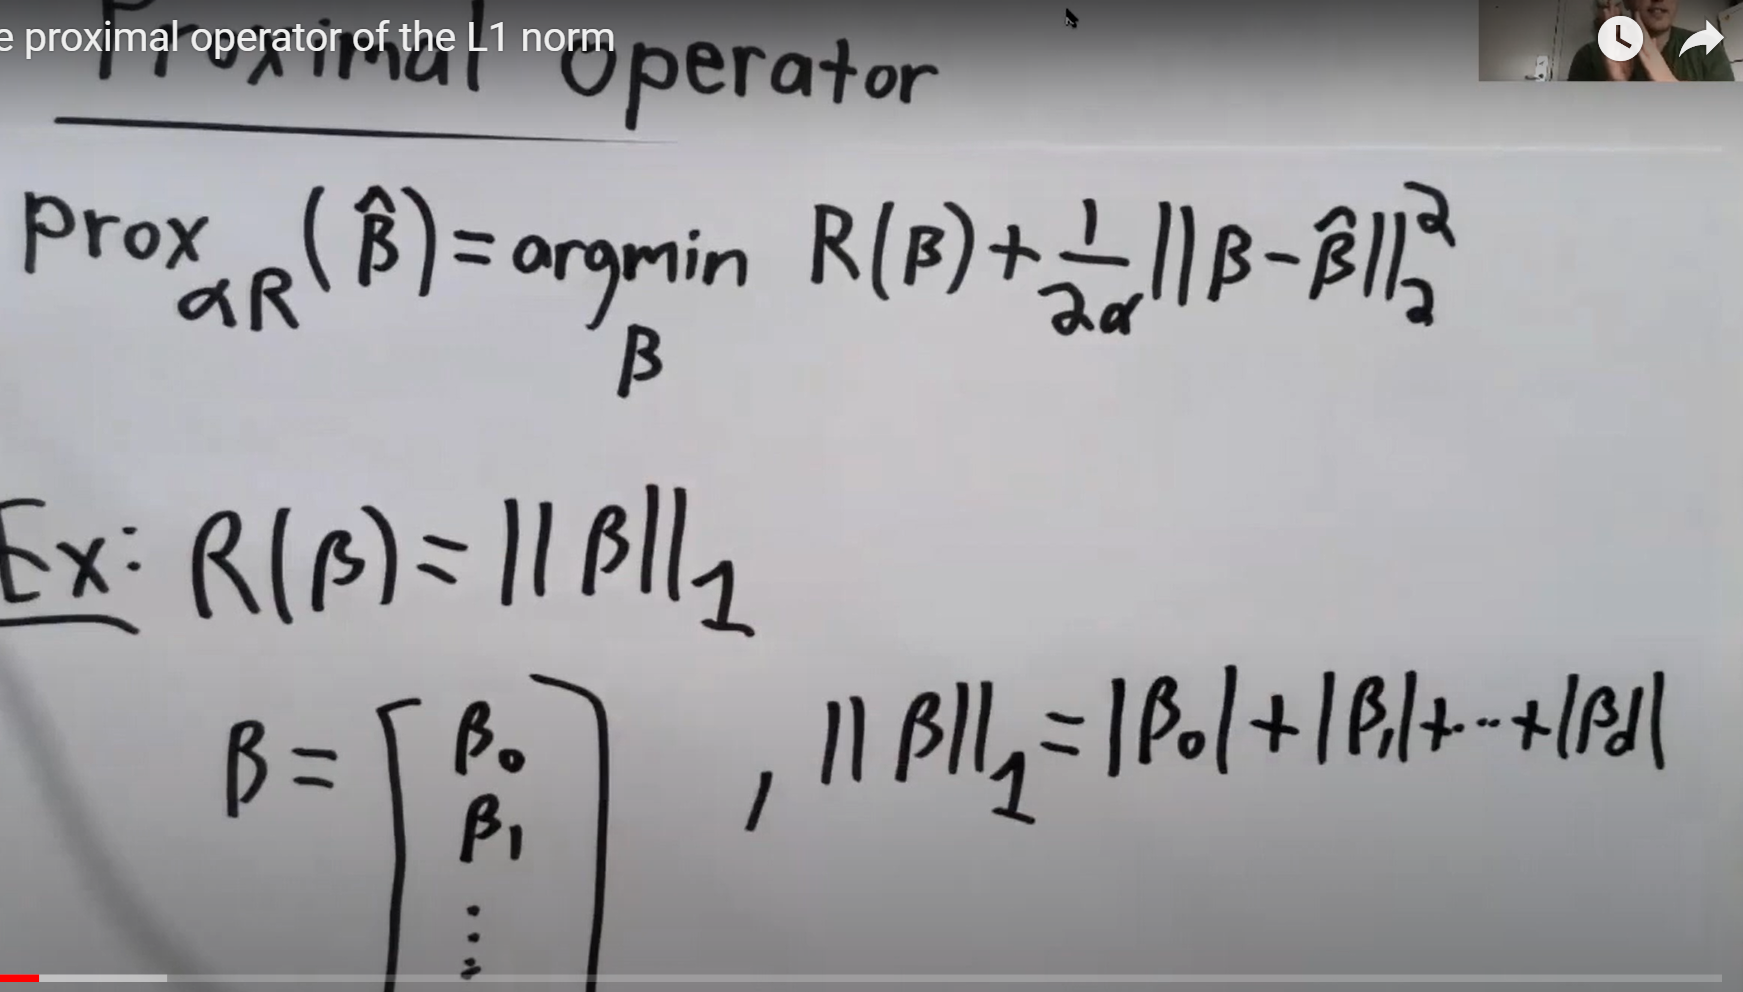 e proximal operator of the L1 norm
Proximal Operator
prox_{αR}(β̂) = argmin_β R(β) + 1/(2α) ||β - β̂||_2^2
Ex: R(β) = ||β||_1
β = [β_0 β_1 ⋮ , ||β||_1 = |β_0| + |β_1| + ·· + |β_d|